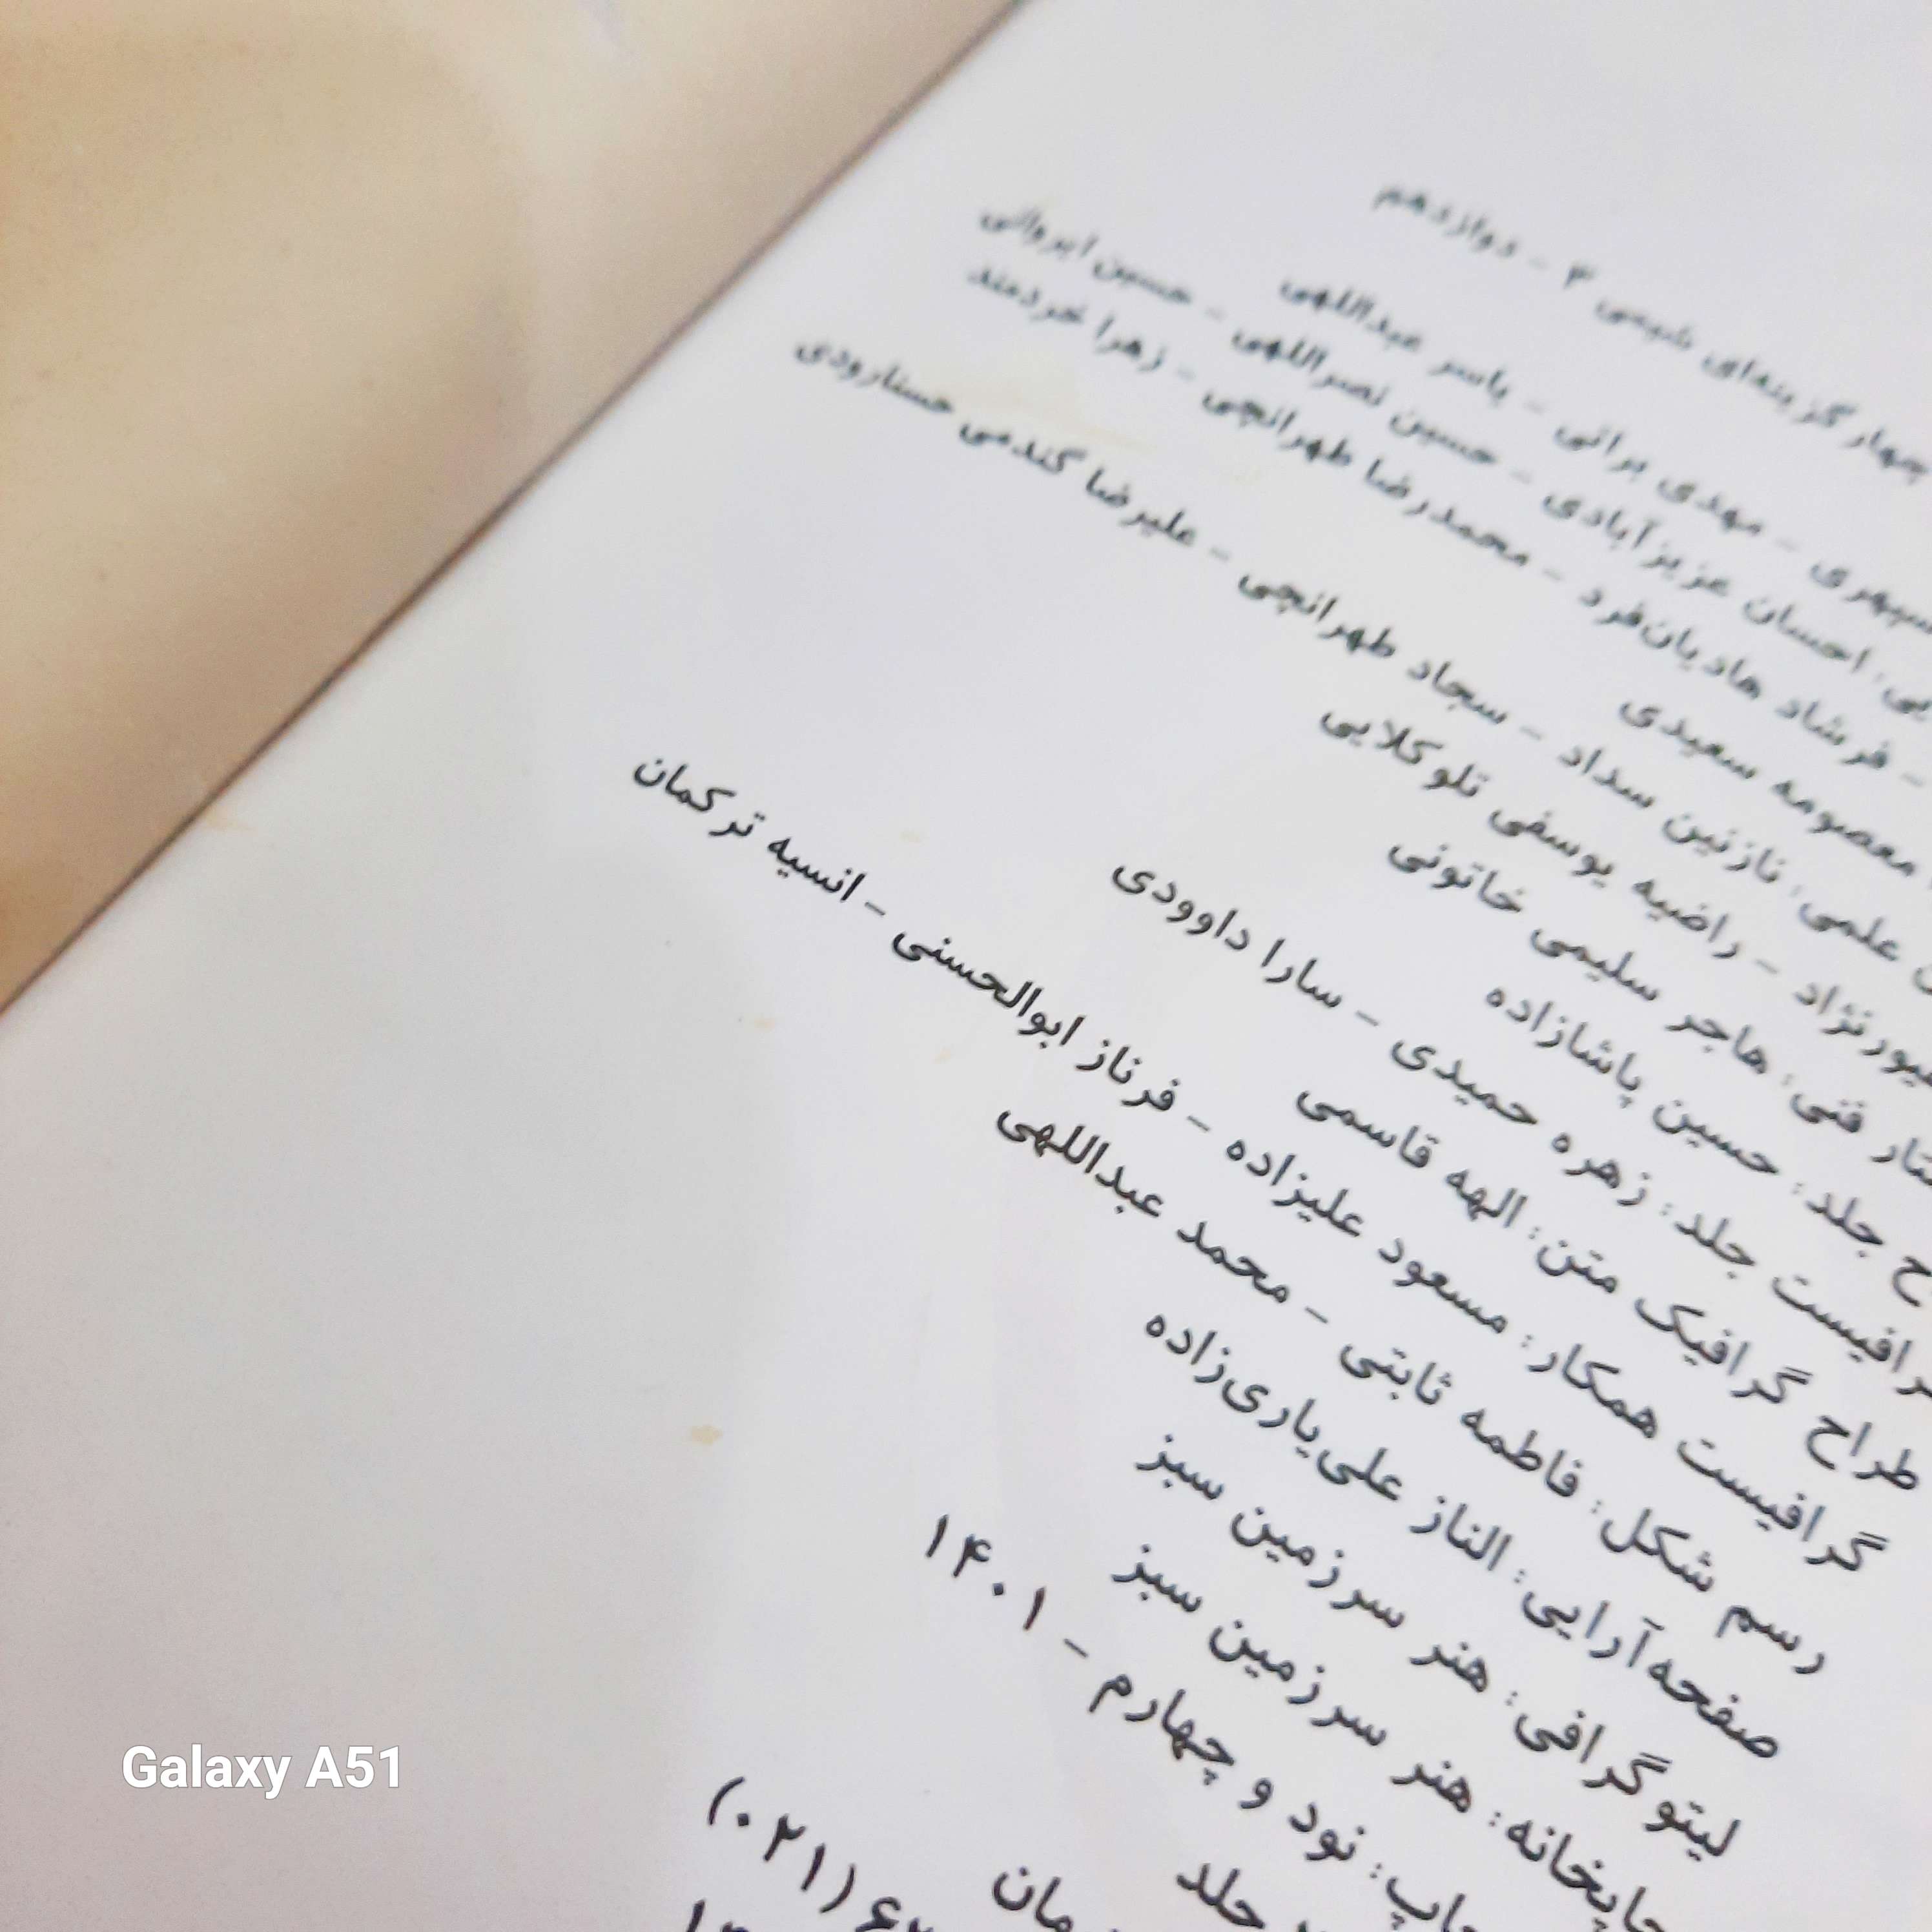 چهارگزینه‌ای شیمی ۳ - دوازدهم
سپهری - مهدی براتی - یاسر عبداللهی
احسان عزیزآبادی - حسین نصراللهی - حسین ایروانی
- فرشاد هادیان‌فرد - محمدرضا طهرانچی - زهرا خردمند
معصومه سعیدی
علمی: نازنین سداد - سجاد طهرانچی - علیرضا گندمی حسنارودی
- راضیه یوسفی تلوکلایی
فنی: هاجر سلیمی خاتونی
جلد: حسین پاشازاده
جلد: زهره حمیدی - سارا داوودی
طراح گرافیک متن: الهه قاسمی
گرافیست همکار: مسعود علیزاده - فرناز ابوالحسنی - انسیه ترکمان
رسم شکل: فاطمه ثابتی - محمد عبداللهی
صفحه‌آرایی: الناز علی‌یاری‌زاده
لیتوگرافی: هنر سرزمین سبز
چاپخانه: هنر سرزمین سبز
نود و چهارم - ۱۴۰۱
جلد
(۰۲۱)
Galaxy A51